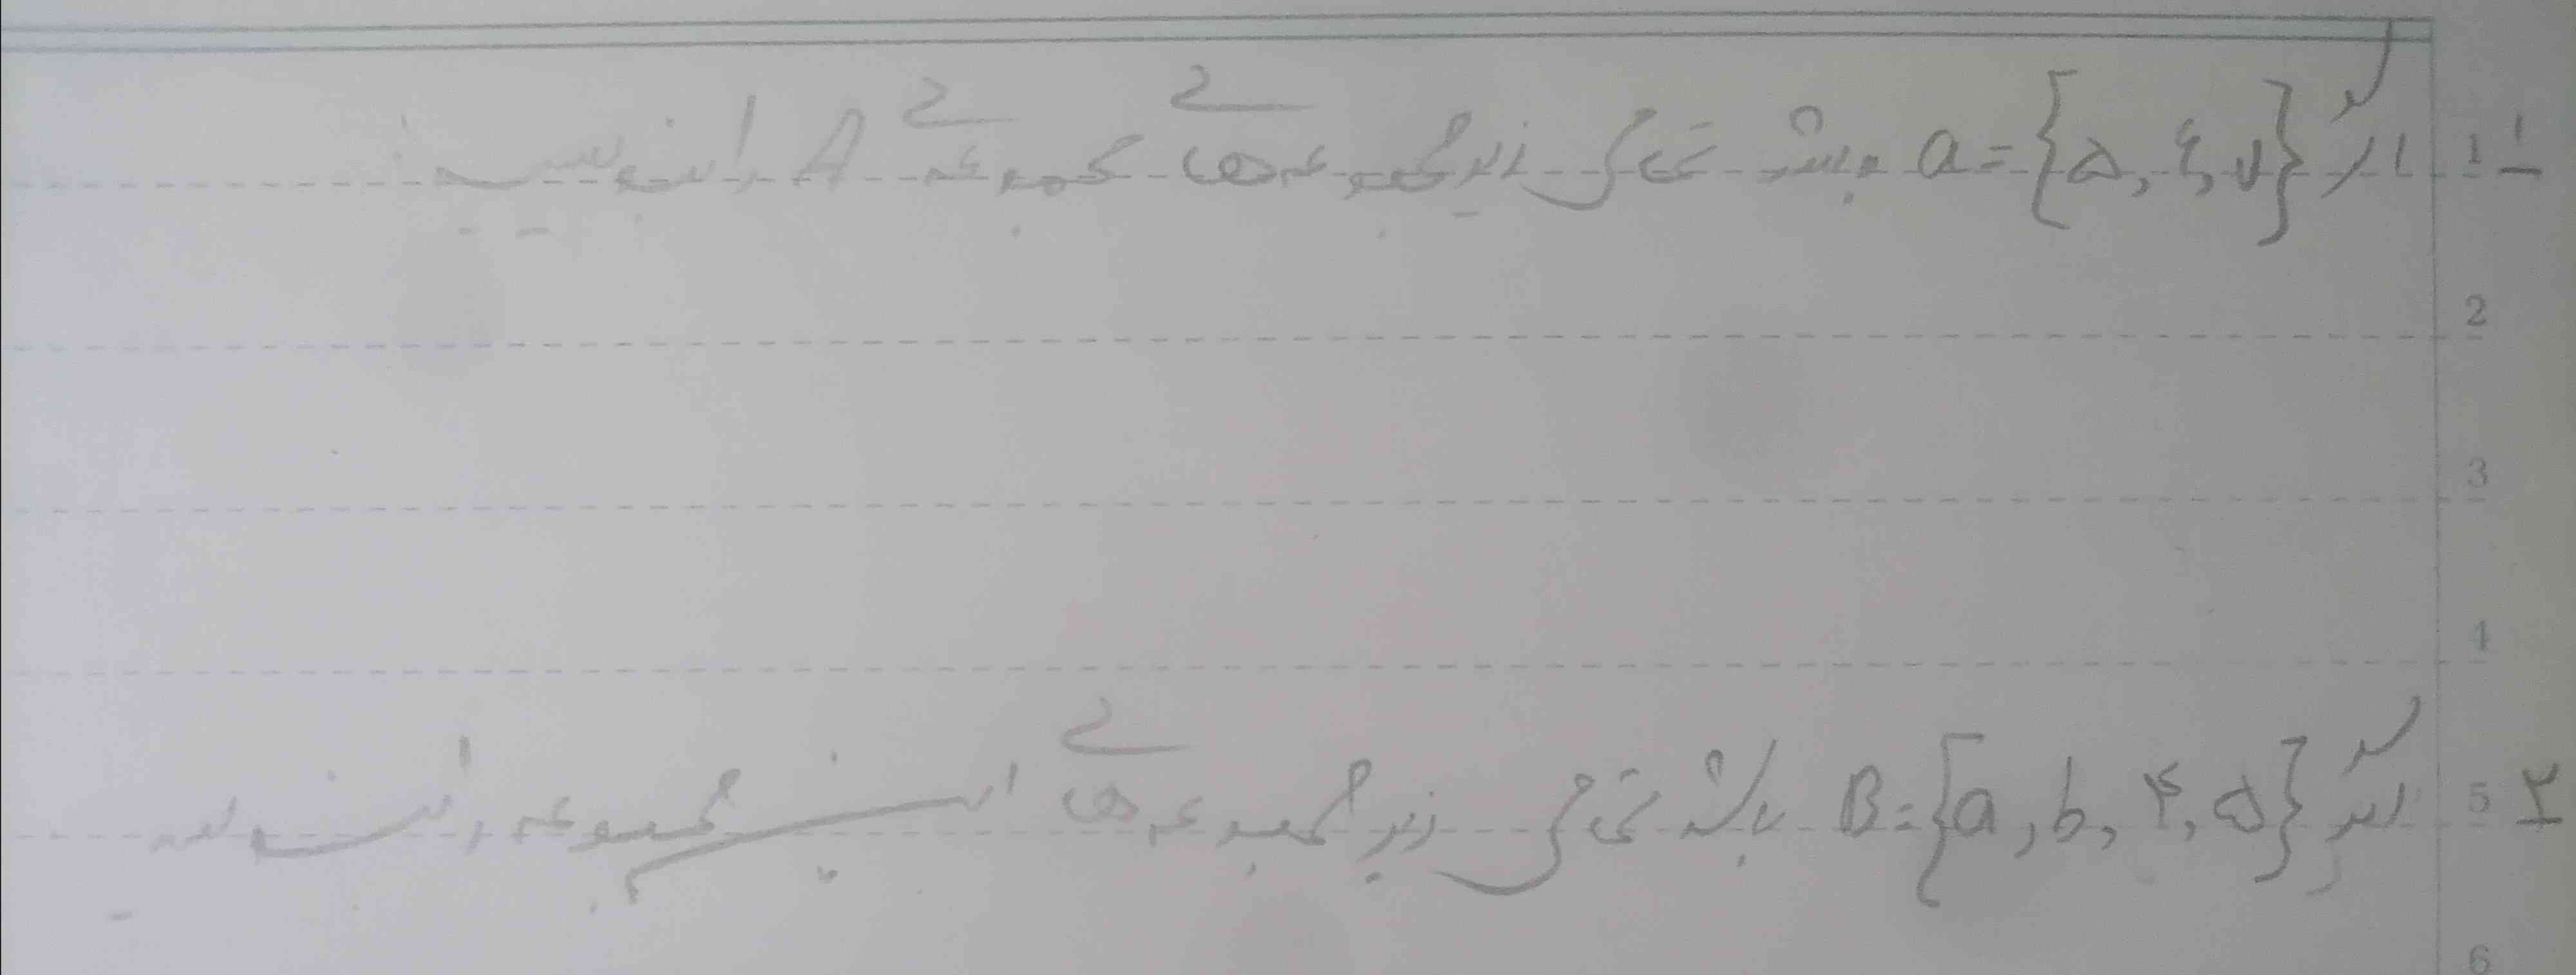 1 ۱ـ اگر a = {۵, ۶, ۷} باشد تمامی زیرمجموعه‌های مجموعه‌ی A را بنویسید:
2
3
4
5 ۲ـ اگر B = {a, b, ۴, ۵} باشد تمامی زیرمجموعه‌های این مجموعه را بنویسید
6